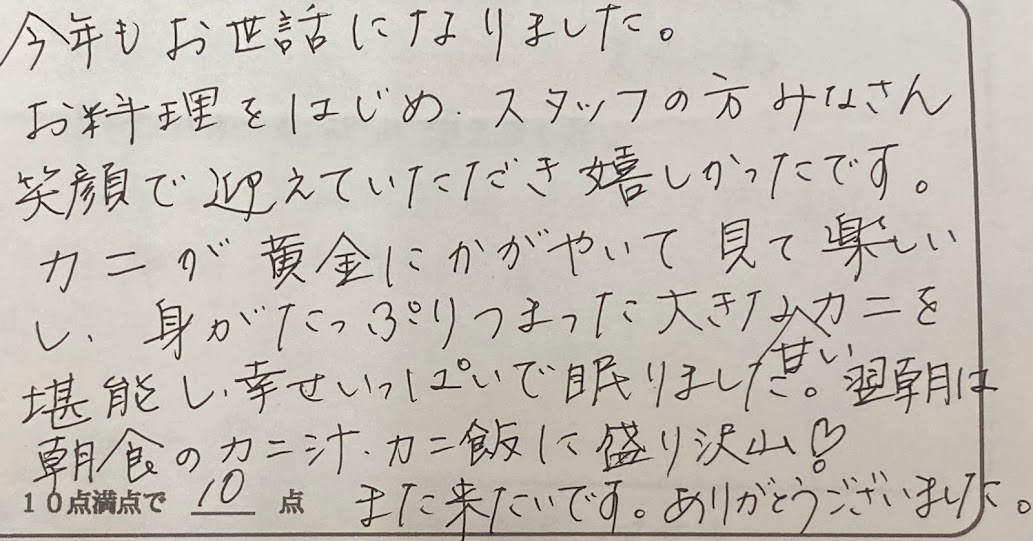 今年もお世話になりました。
お料理をはじめ、スタッフの方みなさん
笑顔で迎えていただき嬉しかったです。
カニが黄金にかがやいて見て楽しい
し、身がたっぷりつまった大きな甘いカニを
堪能し、幸せいっぱいで眠りました。翌朝は
朝食のカニ汁、カニ飯に盛り沢山♡
10点満点で 10 点 また来たいです。ありがとうございました。